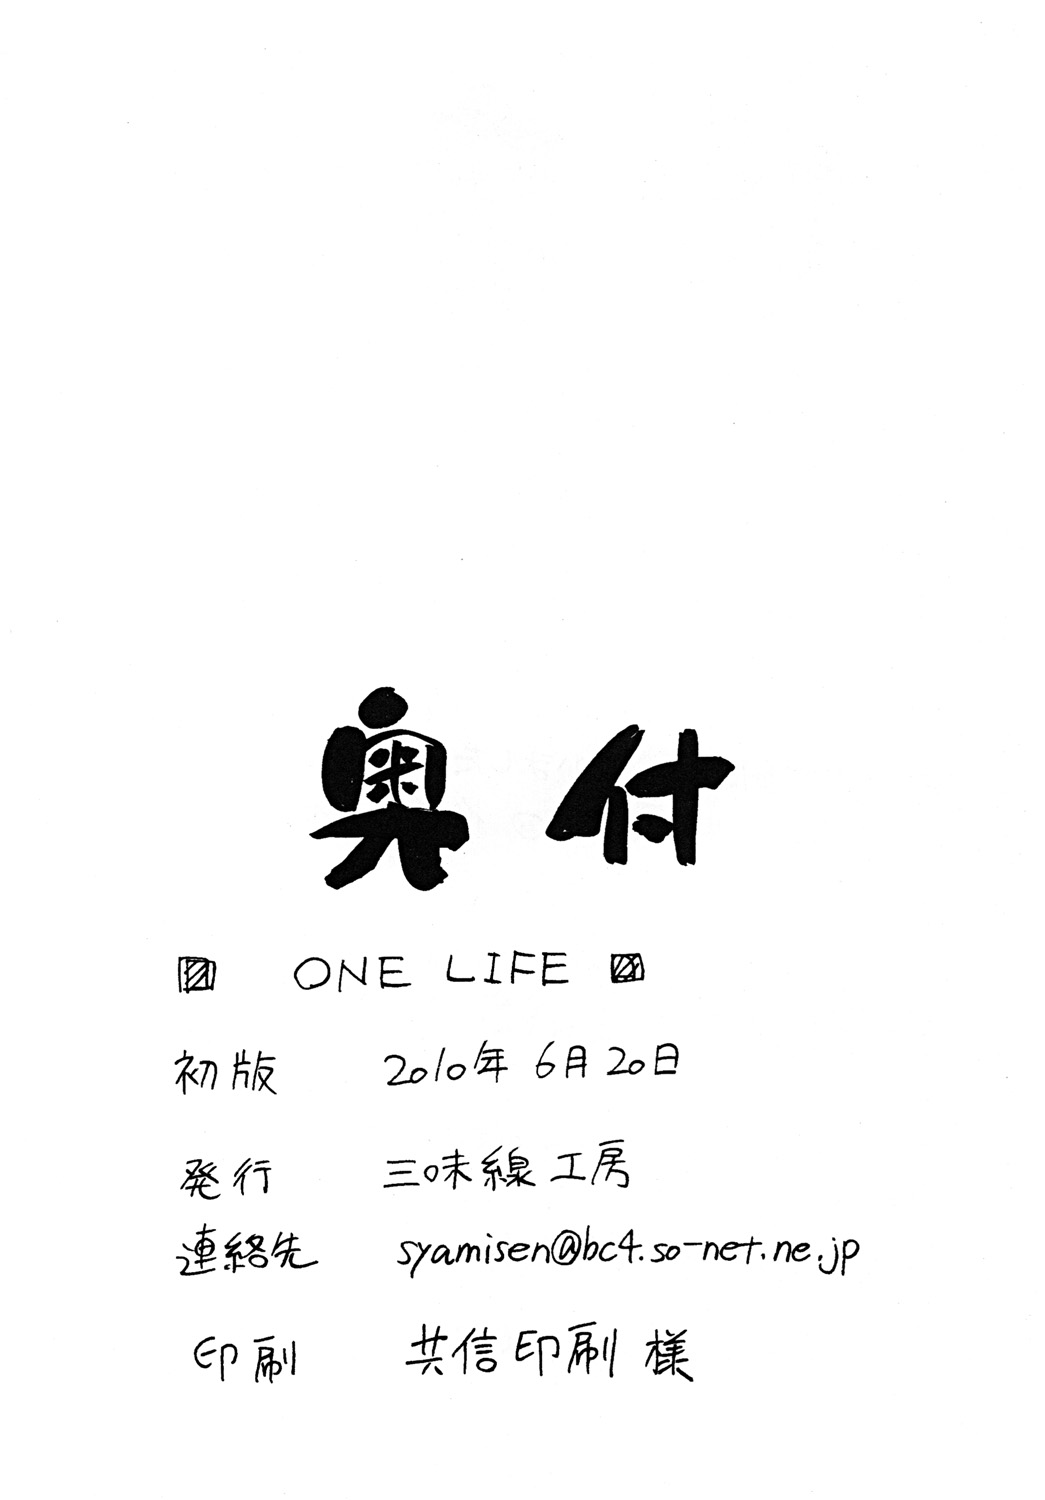 奥付
▨ ONE LIFE ▨
初版 2010年 6月20日
発行 三味線工房
連絡先 syamisen@bc4.so-net.ne.jp
印刷 共信印刷 様